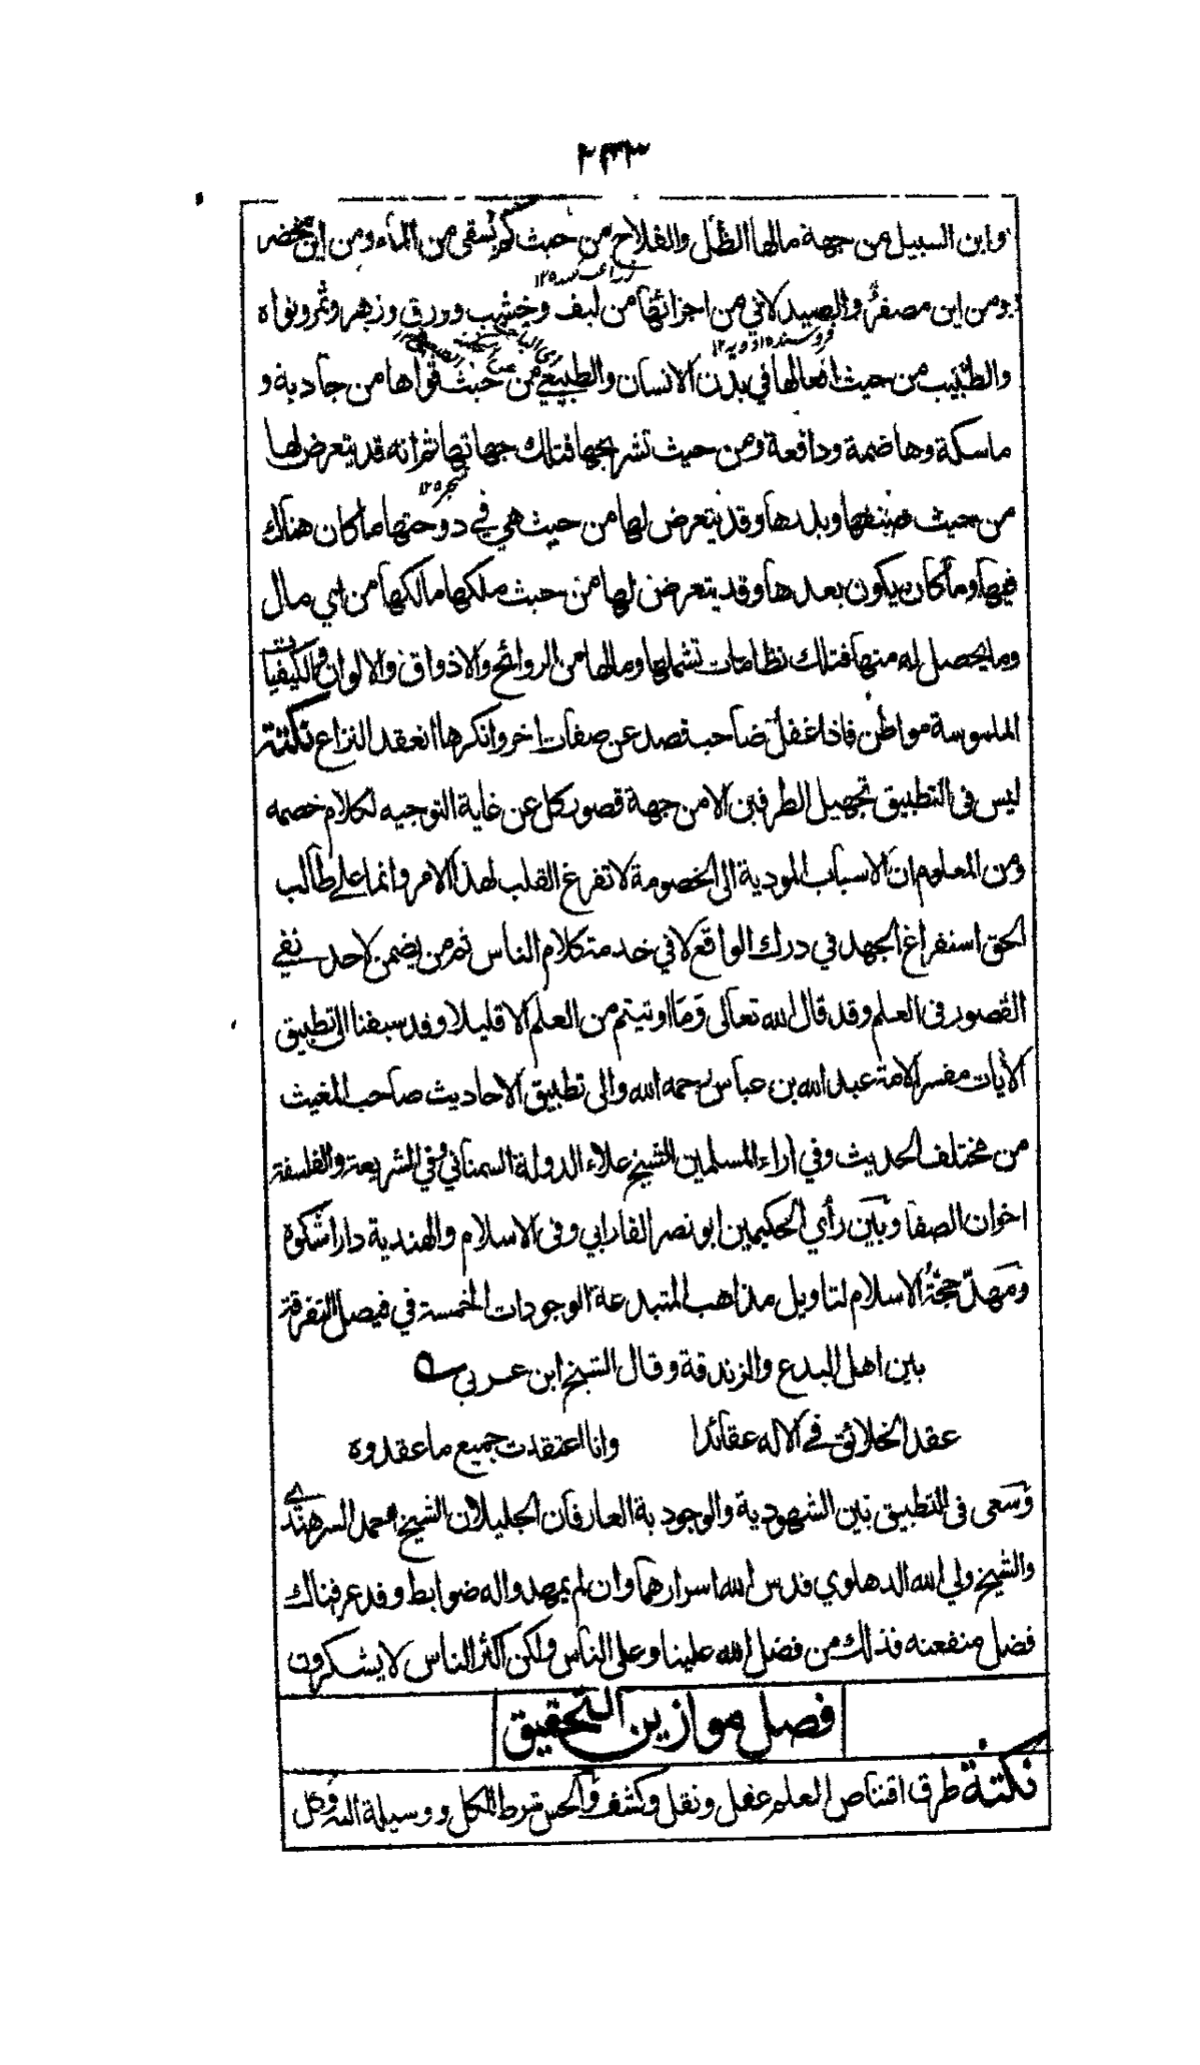 ٢٣٣
وابن السبيل من جهة مالها الظل والفلاح من حيث كم تسقى من الماء ومن اين تخضر
ومن اين تصفر والصيدلاني من اجزائها من ليف وخشب وورق وزهر وثمر ونواه
والطبيب من حيث افعالها في بدن الانسان والطبيعي من حيث قواها من جاذبة و
ماسكة وهاضمة ودافعة ومن حيث تشريحها فتلك جهاتها ثم انه قد يتعرض لها
من حيث صنفها وبلدها وقد يتعرض لها من حيث هي في دوحتها ما كان هناك
فيها وما كان يكون بعدها وقد يتعرض لها من حيث ملكها مالكها من اي مال
وما يحصل له منها فتلك نظامات تشملها ومالها من الروائح والاذواق والالوان والكيفيات
الملموسة مواطن فاذا غفل صاحب قصد عن صفات اخر وانكرها انعقد النزاع نكتة
ليس في التطبيق تجهيل الطرفين الا من جهة قصور كل عن غاية التوجيه لكلام خصمه
ومن المعلوم ان الاسباب المودية الى الخصومة لا تفرغ القلب لهذا الامر وانما على طالب
الحق استفراغ الجهد في درك الواقع لا في خدمة كلام الناس ثم من يضمن لاحد نفي
القصور في العلم وقد قال الله تعالى وما اوتيتم من العلم الا قليلا وقد سبقنا الى تطبيق
الآيات مفسر الامة عبد الله بن عباس رحمه الله والى تطبيق الاحاديث صاحب المغيث
من مختلف الحديث وفي اراء المسلمين الشيخ علاء الدولة السمناني وفي الشريعة والفلسفة
اخوان الصفا وبين رأي الحكيمين ابو نصر الفارابي وفي الاسلام والهندية داراشكوة
ومهد حجة الاسلام لتاويل مذاهب المتبدعة الوجودات الخمسة في فيصل التفرقة
بين اهل البدع والزندقة وقال الشيخ ابن عربي ؎
عقد الخلائق في الاله عقائدا وانا اعتقدت جميع ما عقدوه
وسعى في التطبيق بين الشهودية والوجودية العارفان الجليلان الشيخ احمد السرهندي
والشيخ ولي الله الدهلوي قدس الله اسرارهما وان لم يمهدوا له ضوابط وقد عرفناك
فضل منفعته فذلك من فضل الله علينا وعلى الناس ولكن اكثر الناس لا يشكرون
فصل موازين التحقيق
نكتة طرق اقتناص العلم عقل ونقل وكشف والحس شرط الكل ووسيلة اليه وكل